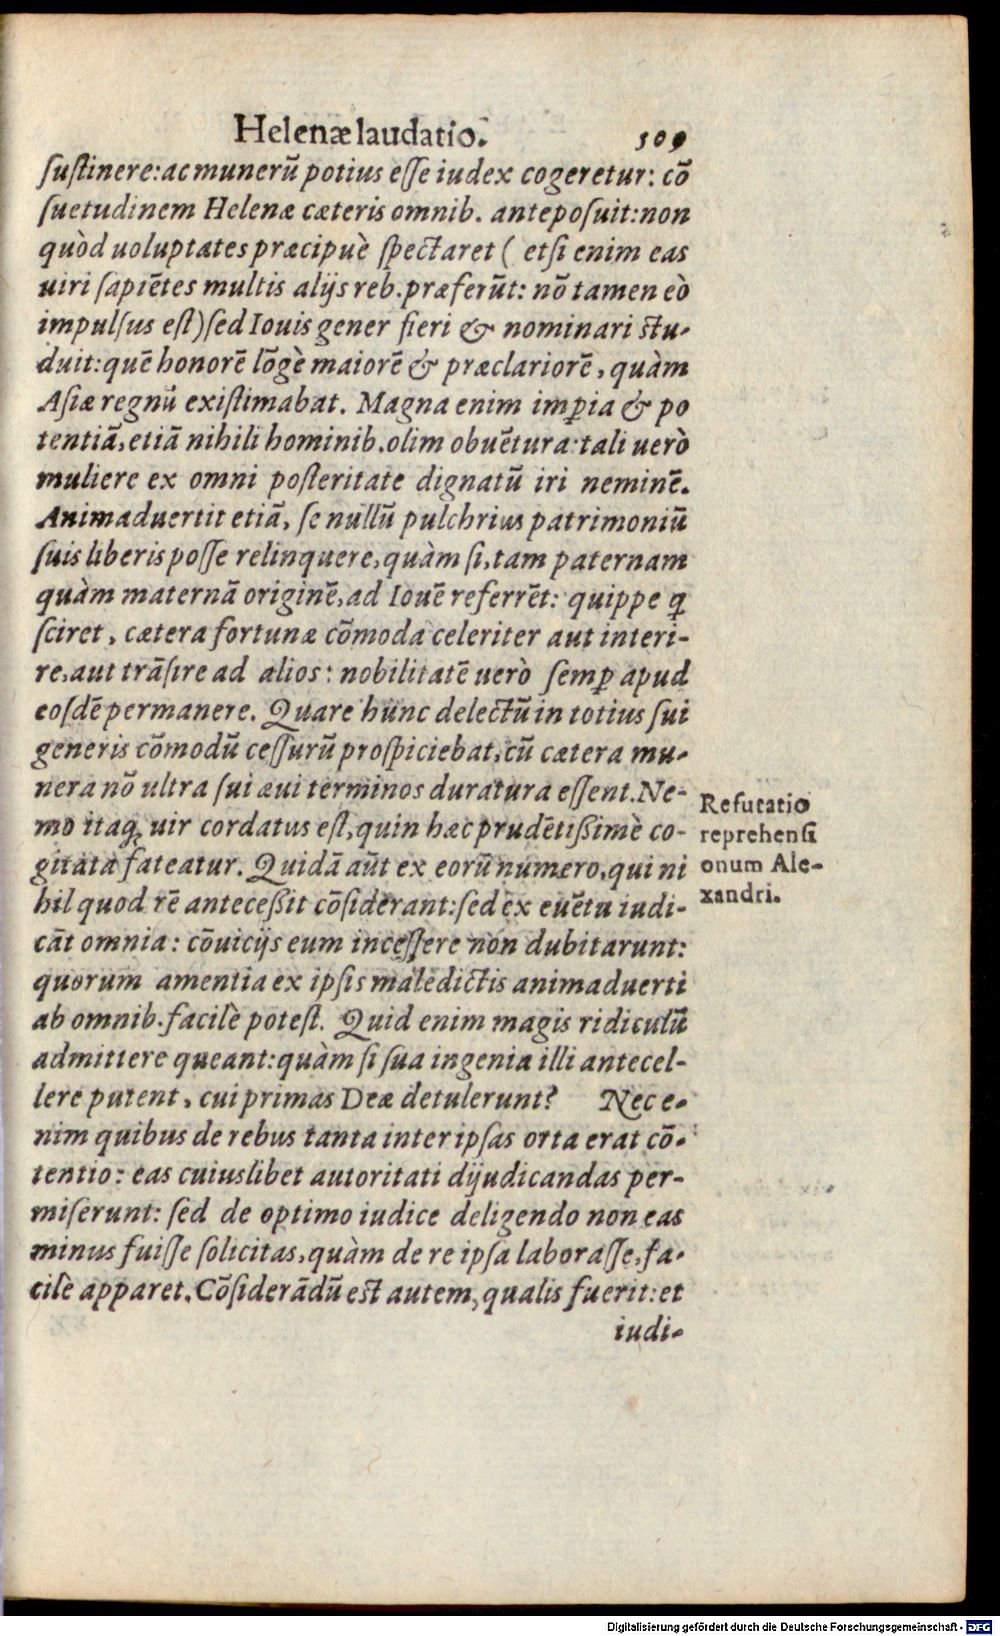 Helenæ laudatio. 309
sustinere: ac munerū potius esse iudex cogeretur: cō
suetudinem Helenæ cæteris omnib. anteposuit: non
quòd uoluptates præcipuè spectaret ( etsi enim eas
uiri sapiētes multis alijs reb. præferūt: nō tamen eò
impulsus est) sed Iouis gener fieri & nominari stu-
duit: quē honorē lōgè maiorē & præclariorē, quàm
Asiæ regnū existimabat. Magna enim imꝑia & po
tentiā, etiā nihili hominib. olim obuētura: tali uerò
muliere ex omni posteritate dignatū iri neminē.
Animaduertit etiā, se nullū pulchrius patrimoniū
suis liberis posse relinquere, quàm si, tam paternam
quàm maternā originē, ad Iouē referrēt: quippe q̄
sciret, cætera fortunæ cōmoda celeriter aut interi-
re, aut trāsire ad alios: nobilitatē uerò semꝑ apud
eosdē permanere. Quare hunc delectū in totius sui
generis cōmodū cessurū prospiciebat, cū cætera mu-
nera nō ultra sui æui terminos duratura essent. Ne-
mo itaq; uir cordatus est, quin hæc prudētißimè co-
gitata fateatur. Quidā aūt ex eorū numero, qui ni
hil quod rē anteceßit cōsiderant: sed ex euētu iudi-
cāt omnia: cōuicijs eum incessere non dubitarunt:
quorum amentia ex ipsis maledictis animaduerti
ab omnib. facilè potest. Quid enim magis ridiculū
admittere queant: quàm si sua ingenia illi antecel-
lere putent, cui primas Deæ detulerunt? Nec e-
nim quibus de rebus tanta inter ipsas orta erat cō-
tentio: eas cuiuslibet autoritati dijudicandas per-
miserunt: sed de optimo iudice deligendo non eas
minus fuisse solicitas, quàm de re ipsa laborasse, fa-
cilè apparet. Cōsiderādū est autem, qualis fuerit: et
iudi-
Refutatio
reprehensi
onum Ale-
xandri.
Digitalisierung gefördert durch die Deutsche Forschungsgemeinschaft - DFG